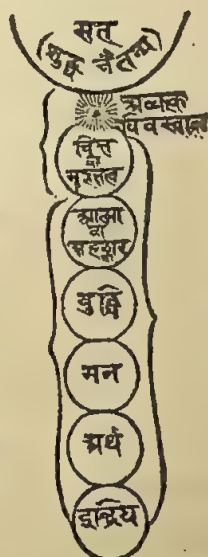 सत्
(शुद्ध चैतन्य)
अव्यक्त
चित्त
वा
महत्तत्व
आत्मा
वा
अहङ्कार
बुद्धि
मन
अर्थ
इन्द्रिय